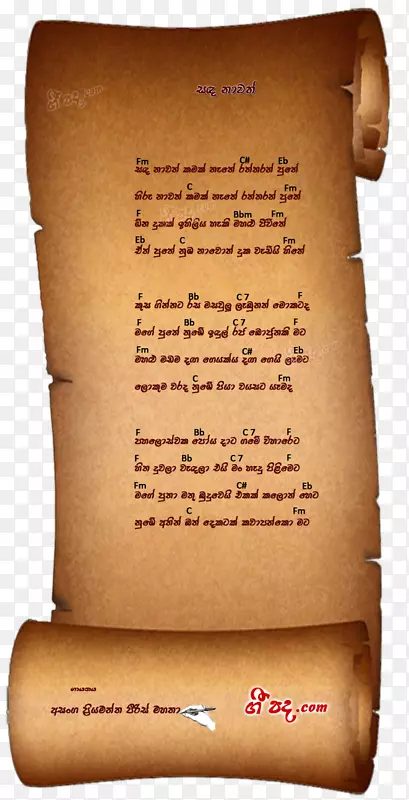 ගී පද.com
සඳ නාවත්
Fm C# Eb
සඳ නාවත් කමක් නැතේ රත්තරන් පුතේ
C Fm
හිරු නාවත් කමක් නැතේ රත්තරන් පුතේ
F Bbm Fm
ඕන දුකක් ඉහිලිය හැකි මහළු ජීවිතේ
Eb C Fm
ඒත් පුතේ නුඹ නාවොත් දුක වැඩියි හිතේ
F Bb C 7 F
කුස ගින්නට රස මසවුලු ලැබුනත් මොකටද
F Bb C 7 F
මගේ පුතේ නුඹේ ඉඳුල් රජ බොජුනකි මට
Fm C# Eb
මහළු මඩම දඟ ගෙයක්ය දඟ ගෙයි ලැමට
C F
ලොකුම වරද නුඹේ පියා වයසට යෑමද
F Bb C 7 F
පහලොස්වක පෝය දාට ගමේ විහාරෙට
F Bb C 7 F
හිත දුවලා වැඳලා එයි මං හැදූ පිළිමෙට
Fm C# Eb
මගේ පුතා මතු බුදුවෙයි එකක් කලොත් හෙට
C Fm
නුඹේ අතින් බත් දෙකටක් කවාපන්කො මට
ගායනය
අසංග ප්‍රියමන්ත පීරිස් මහතා
ගී පද.com